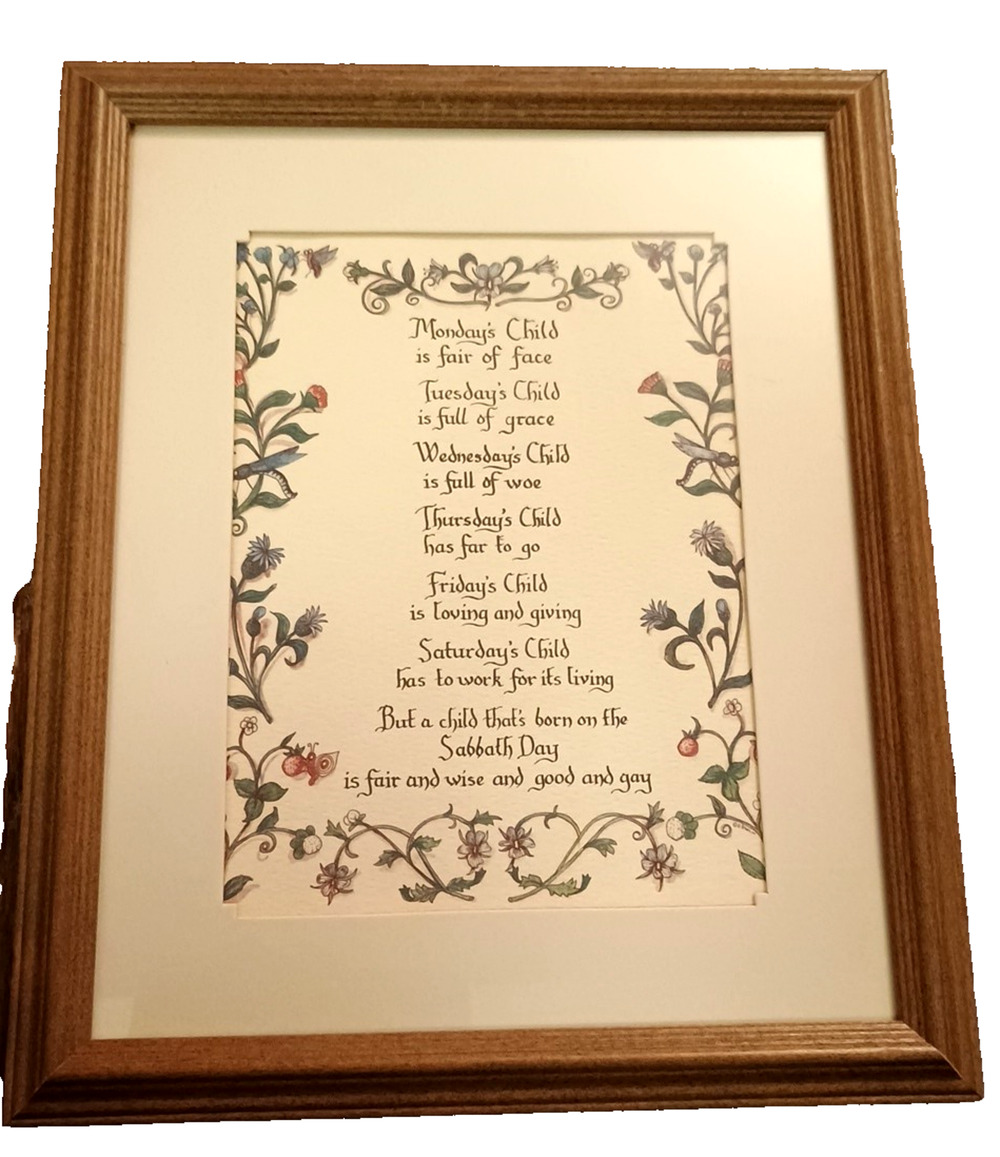 Monday's Child
is fair of face
Tuesday's Child
is full of grace
Wednesday's Child
is full of woe
Thursday's Child
has far to go
Friday's Child
is loving and giving
Saturday's Child
has to work for its living
But a child that's born on the
Sabbath Day
is fair and wise and good and gay